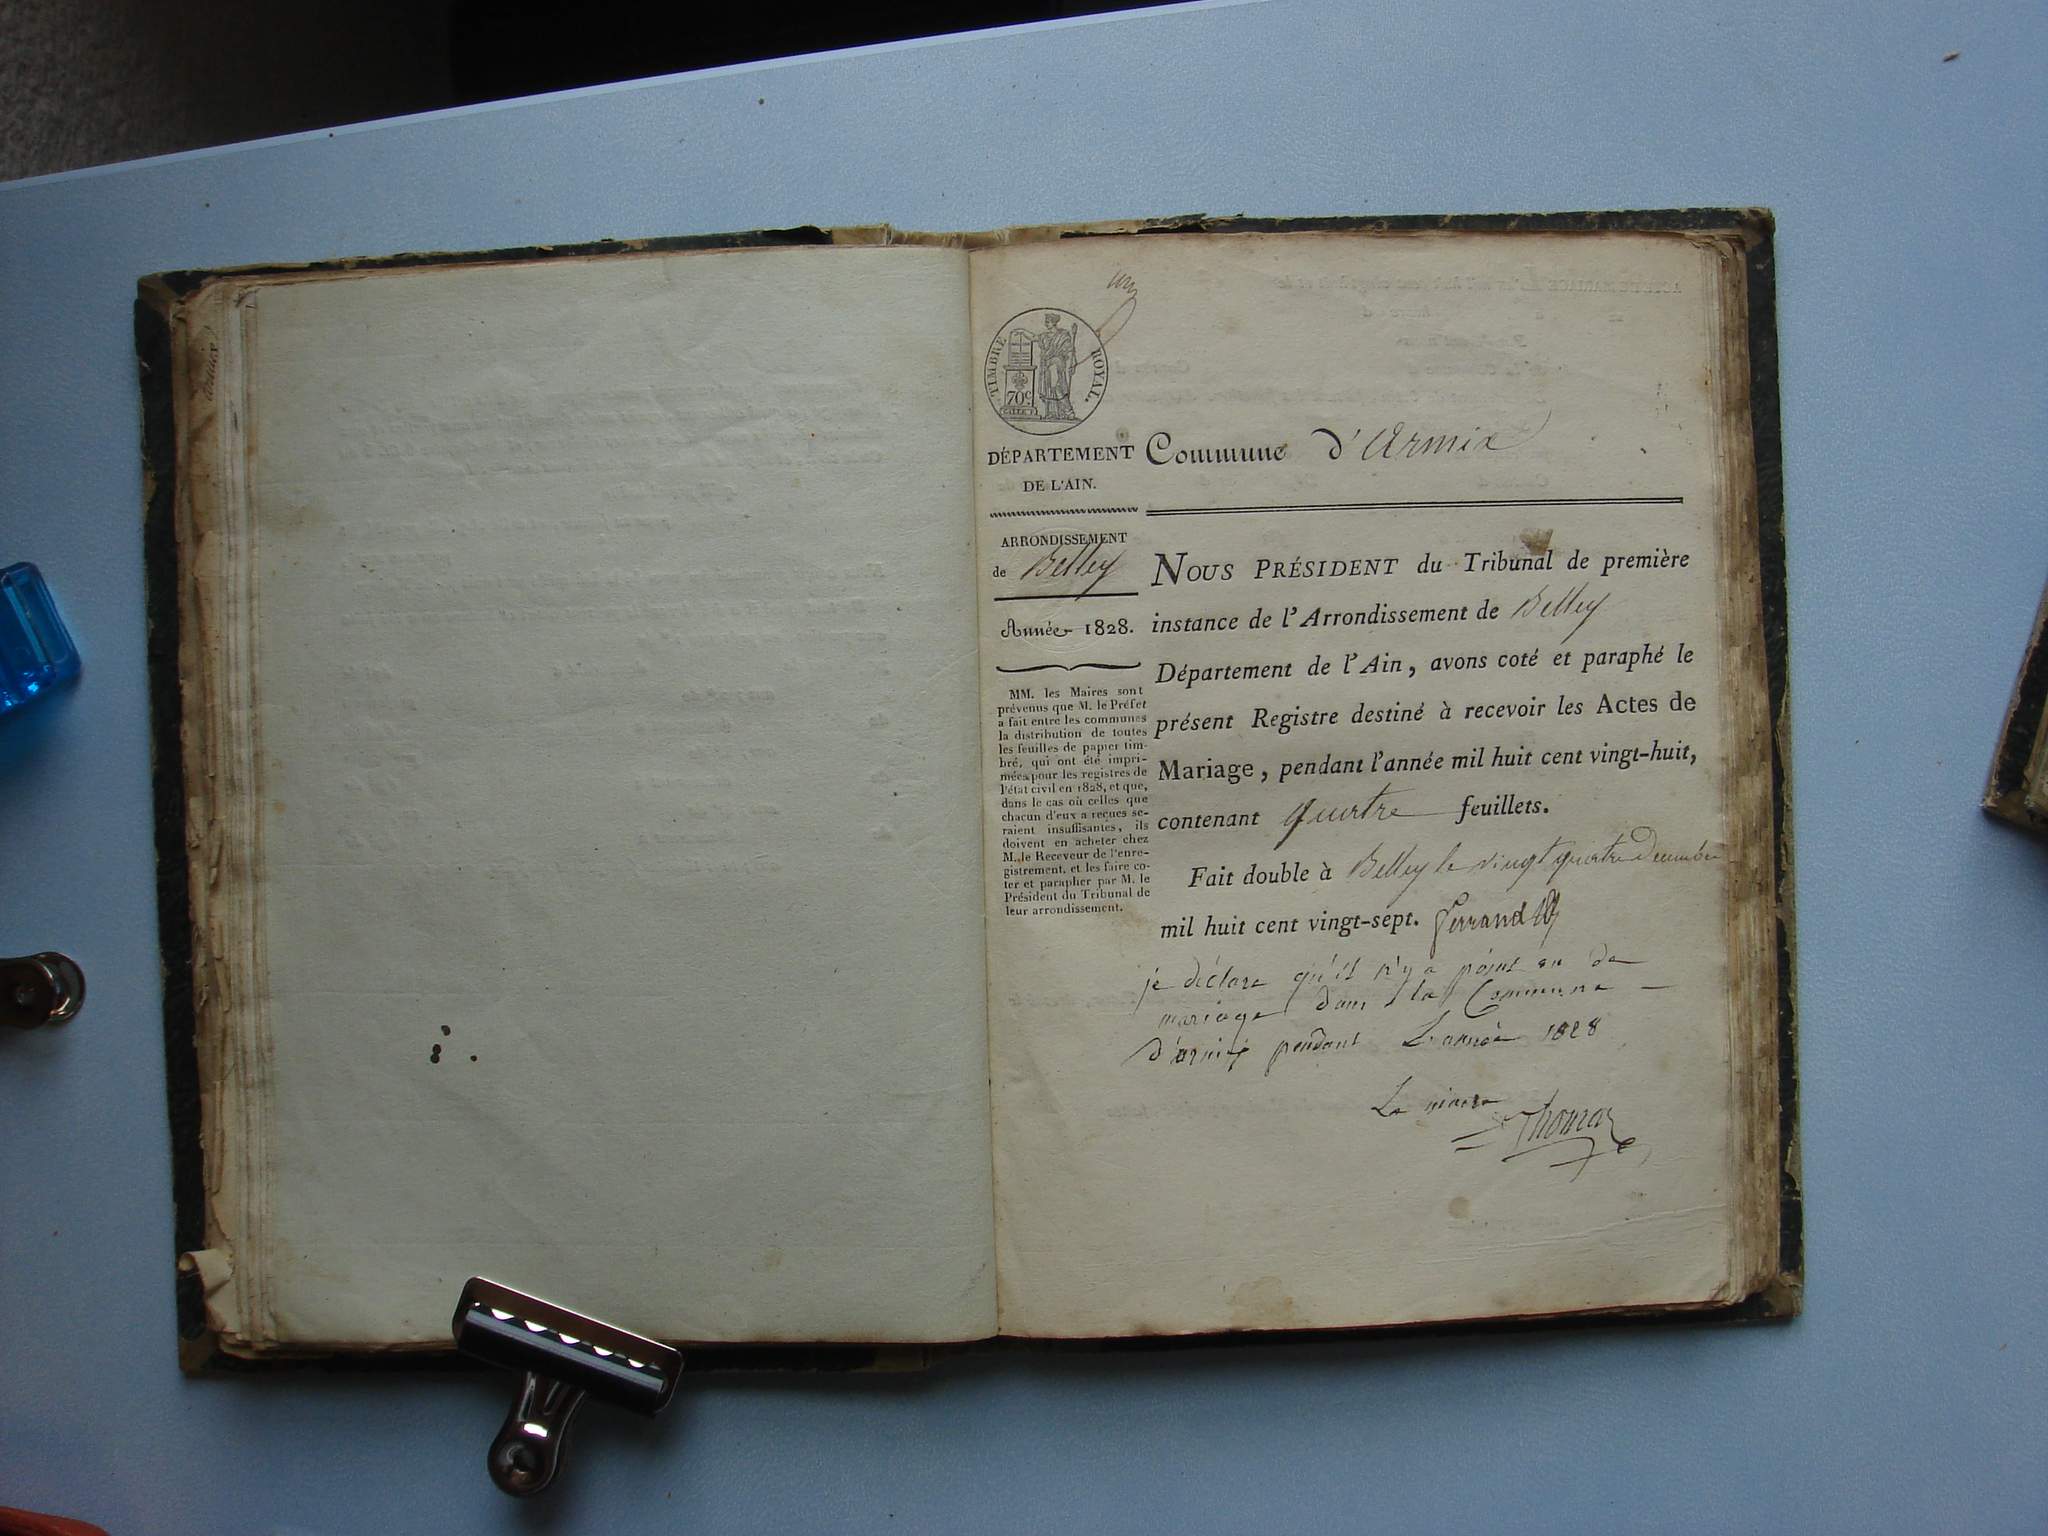 TIMBRE ROYAL.
70 c
DÉPARTEMENT
DE L'AIN.
ARRONDISSEMENT
de Belley
Année 1828.
MM. les Maires sont
prévenus que M. le Préfet
a fait entre les communes
la distribution de toutes
les feuilles de papier tim-
bré, qui ont été impri-
mées pour les registres de
l'état civil en 1828, et que,
dans le cas où celles que
chacun d'eux a reçues se-
raient insuffisantes, ils
doivent en acheter chez
M. le Receveur de l'enre-
gistrement, et les faire co-
ter et parapher par M. le
Président du Tribunal de
leur arrondissement.
Commune d'Armix
NOUS PRÉSIDENT du Tribunal de première
instance de l'Arrondissement de Belley
Département de l'Ain, avons coté et paraphé le
présent Registre destiné à recevoir les Actes de
Mariage, pendant l'année mil huit cent vingt-huit,
contenant quatre feuillets.
Fait double à Belley le vingt quatre Decembre
mil huit cent vingt-sept. Ferrand
je déclare qu'il n'y a point eu de
mariage dans la Commune
d'armix pendant L'année 1828
Le maire
Thomas